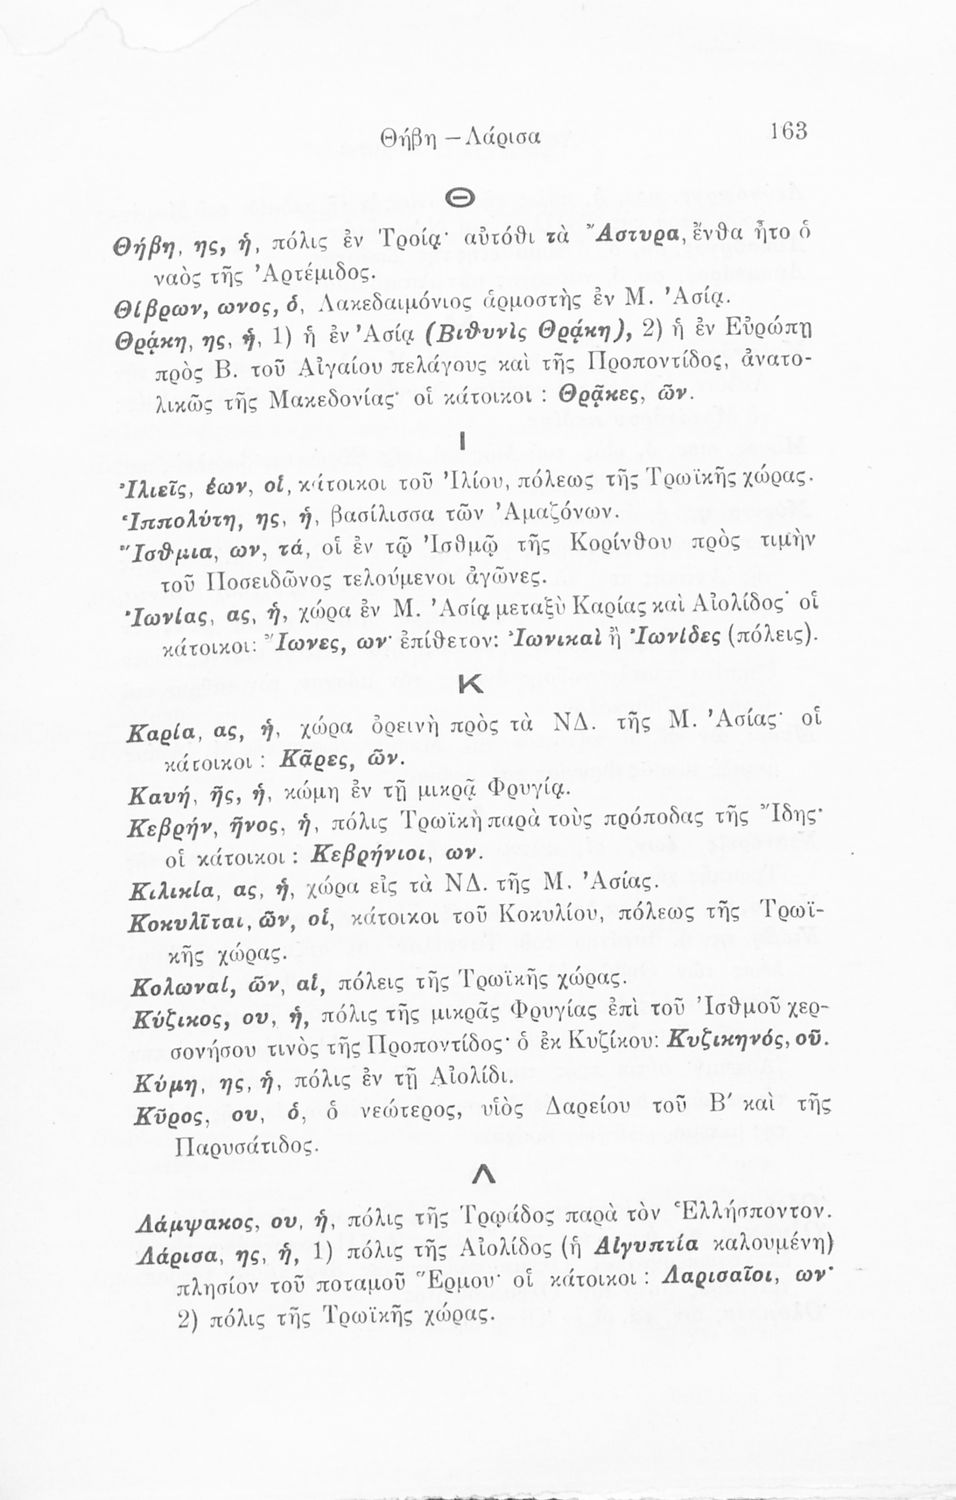 Θήβη — Λάρισα 163
Θ
Θήβη, ης, ἡ, πόλις ἐν Τροίᾳ· αὐτόθι τὰ Ἄστυρα, ἔνθα ἦτο ὁ
ναὸς τῆς Ἀρτέμιδος.
Θίβρων, ωνος, ὁ, Λακεδαιμόνιος ἁρμοστὴς ἐν Μ. Ἀσίᾳ.
Θρᾴκη, ης, ἡ, 1) ἡ ἐν Ἀσίᾳ (Βιθυνὶς Θρᾴκη), 2) ἡ ἐν Εὐρώπῃ
πρὸς Β. τοῦ Αἰγαίου πελάγους καὶ τῆς Προποντίδος, ἀνατο-
λικῶς τῆς Μακεδονίας· οἱ κάτοικοι : Θρᾷκες, ῶν.
Ι
Ἰλιεῖς, έων, οἱ, κάτοικοι τοῦ Ἰλίου, πόλεως τῆς Τρωϊκῆς χώρας.
Ἱππολύτη, ης, ἡ, βασίλισσα τῶν Ἀμαζόνων.
Ἴσθμια, ων, τά, οἱ ἐν τῷ Ἰσθμῷ τῆς Κορίνθου πρὸς τιμὴν
τοῦ Ποσειδῶνος τελούμενοι ἀγῶνες.
Ἰωνίας, ας, ἡ, χώρα ἐν Μ. Ἀσίᾳ μεταξὺ Καρίας καὶ Αἰολίδος· οἱ
κάτοικοι: Ἴωνες, ων· ἐπίθετον: Ἰωνικαὶ ἢ Ἰωνίδες (πόλεις).
Κ
Καρία, ας, ἡ, χώρα ὀρεινὴ πρὸς τὰ ΝΔ. τῆς Μ. Ἀσίας· οἱ
κάτοικοι : Κᾶρες, ῶν.
Καυή, ῆς, ἡ, κώμη ἐν τῇ μικρᾷ Φρυγίᾳ.
Κεβρήν, ῆνος, ἡ, πόλις Τρωϊκὴ παρὰ τοὺς πρόποδας τῆς Ἴδης·
οἱ κάτοικοι : Κεβρήνιοι, ων.
Κιλικία, ας, ἡ, χώρα εἰς τὰ ΝΔ. τῆς Μ. Ἀσίας.
Κοκυλῖται, ῶν, οἱ, κάτοικοι τοῦ Κοκυλίου, πόλεως τῆς Τρωϊ-
κῆς χώρας.
Κολωναί, ῶν, αἱ, πόλεις τῆς Τρωϊκῆς χώρας.
Κύζικος, ου, ἡ, πόλις τῆς μικρᾶς Φρυγίας ἐπὶ τοῦ Ἰσθμοῦ χερ-
σονήσου τινὸς τῆς Προποντίδος· ὁ ἐκ Κυζίκου: Κυζικηνός, οῦ.
Κύμη, ης, ἡ, πόλις ἐν τῇ Αἰολίδι.
Κῦρος, ου, ὁ, ὁ νεώτερος, υἱὸς Δαρείου τοῦ Β′ καὶ τῆς
Παρυσάτιδος.
Λ
Λάμψακος, ου, ἡ, πόλις τῆς Τρῳάδος παρὰ τὸν Ἑλλήσποντον.
Λάρισα, ης, ἡ, 1) πόλις τῆς Αἰολίδος (ἡ Αἰγυπτία καλουμένη)
πλησίον τοῦ ποταμοῦ Ἕρμου· οἱ κάτοικοι : Λαρισαῖοι, ων·
2) πόλις τῆς Τρωϊκῆς χώρας.